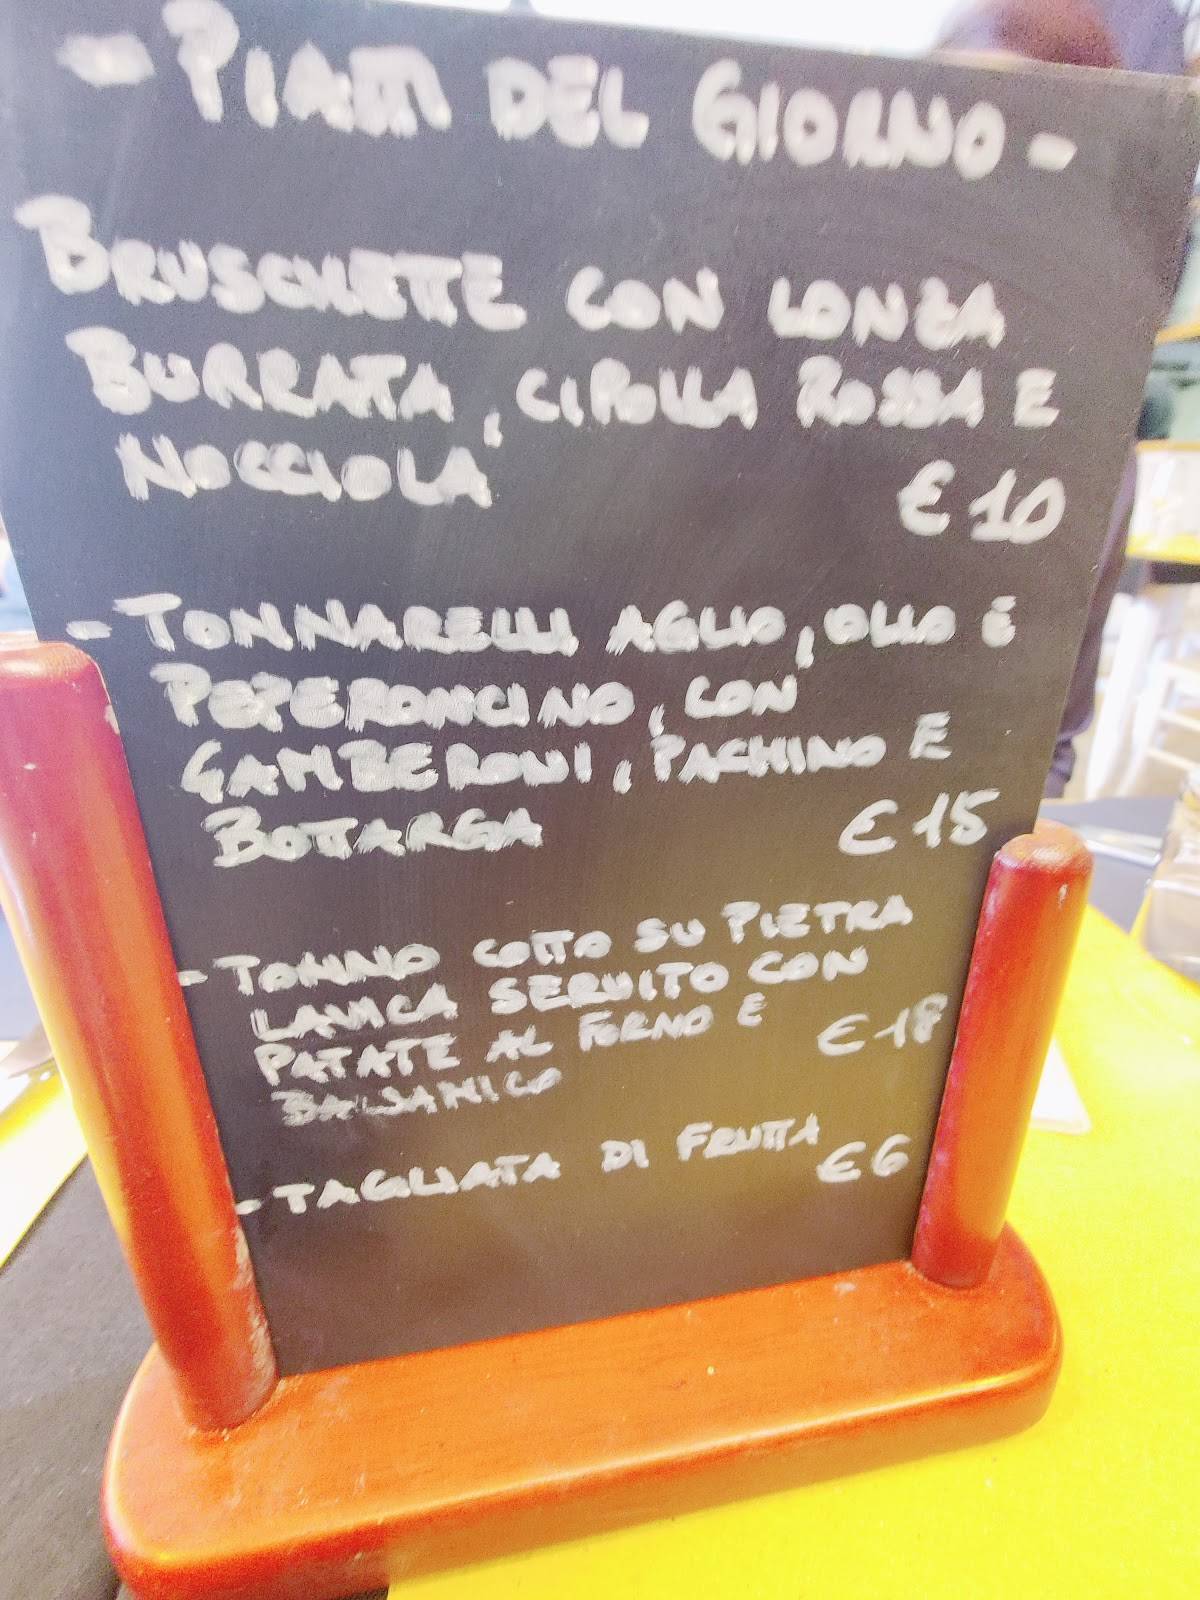 - PIATTI DEL GIORNO -
BRUSCHETTE CON LONZA
BURRATA, CIPOLLA ROSSA E
NOCCIOLA € 10
- TONNARELLI AGLIO, OLIO E
PEPERONCINO, CON
GAMBERONI, PACHINO E
BOTTARGA € 15
- TONNO COTTO SU PIETRA
LAVICA SERVITO CON
PATATE AL FORNO E € 18
BALSAMICO
- TAGLIATA DI FRUTTA
€ 6